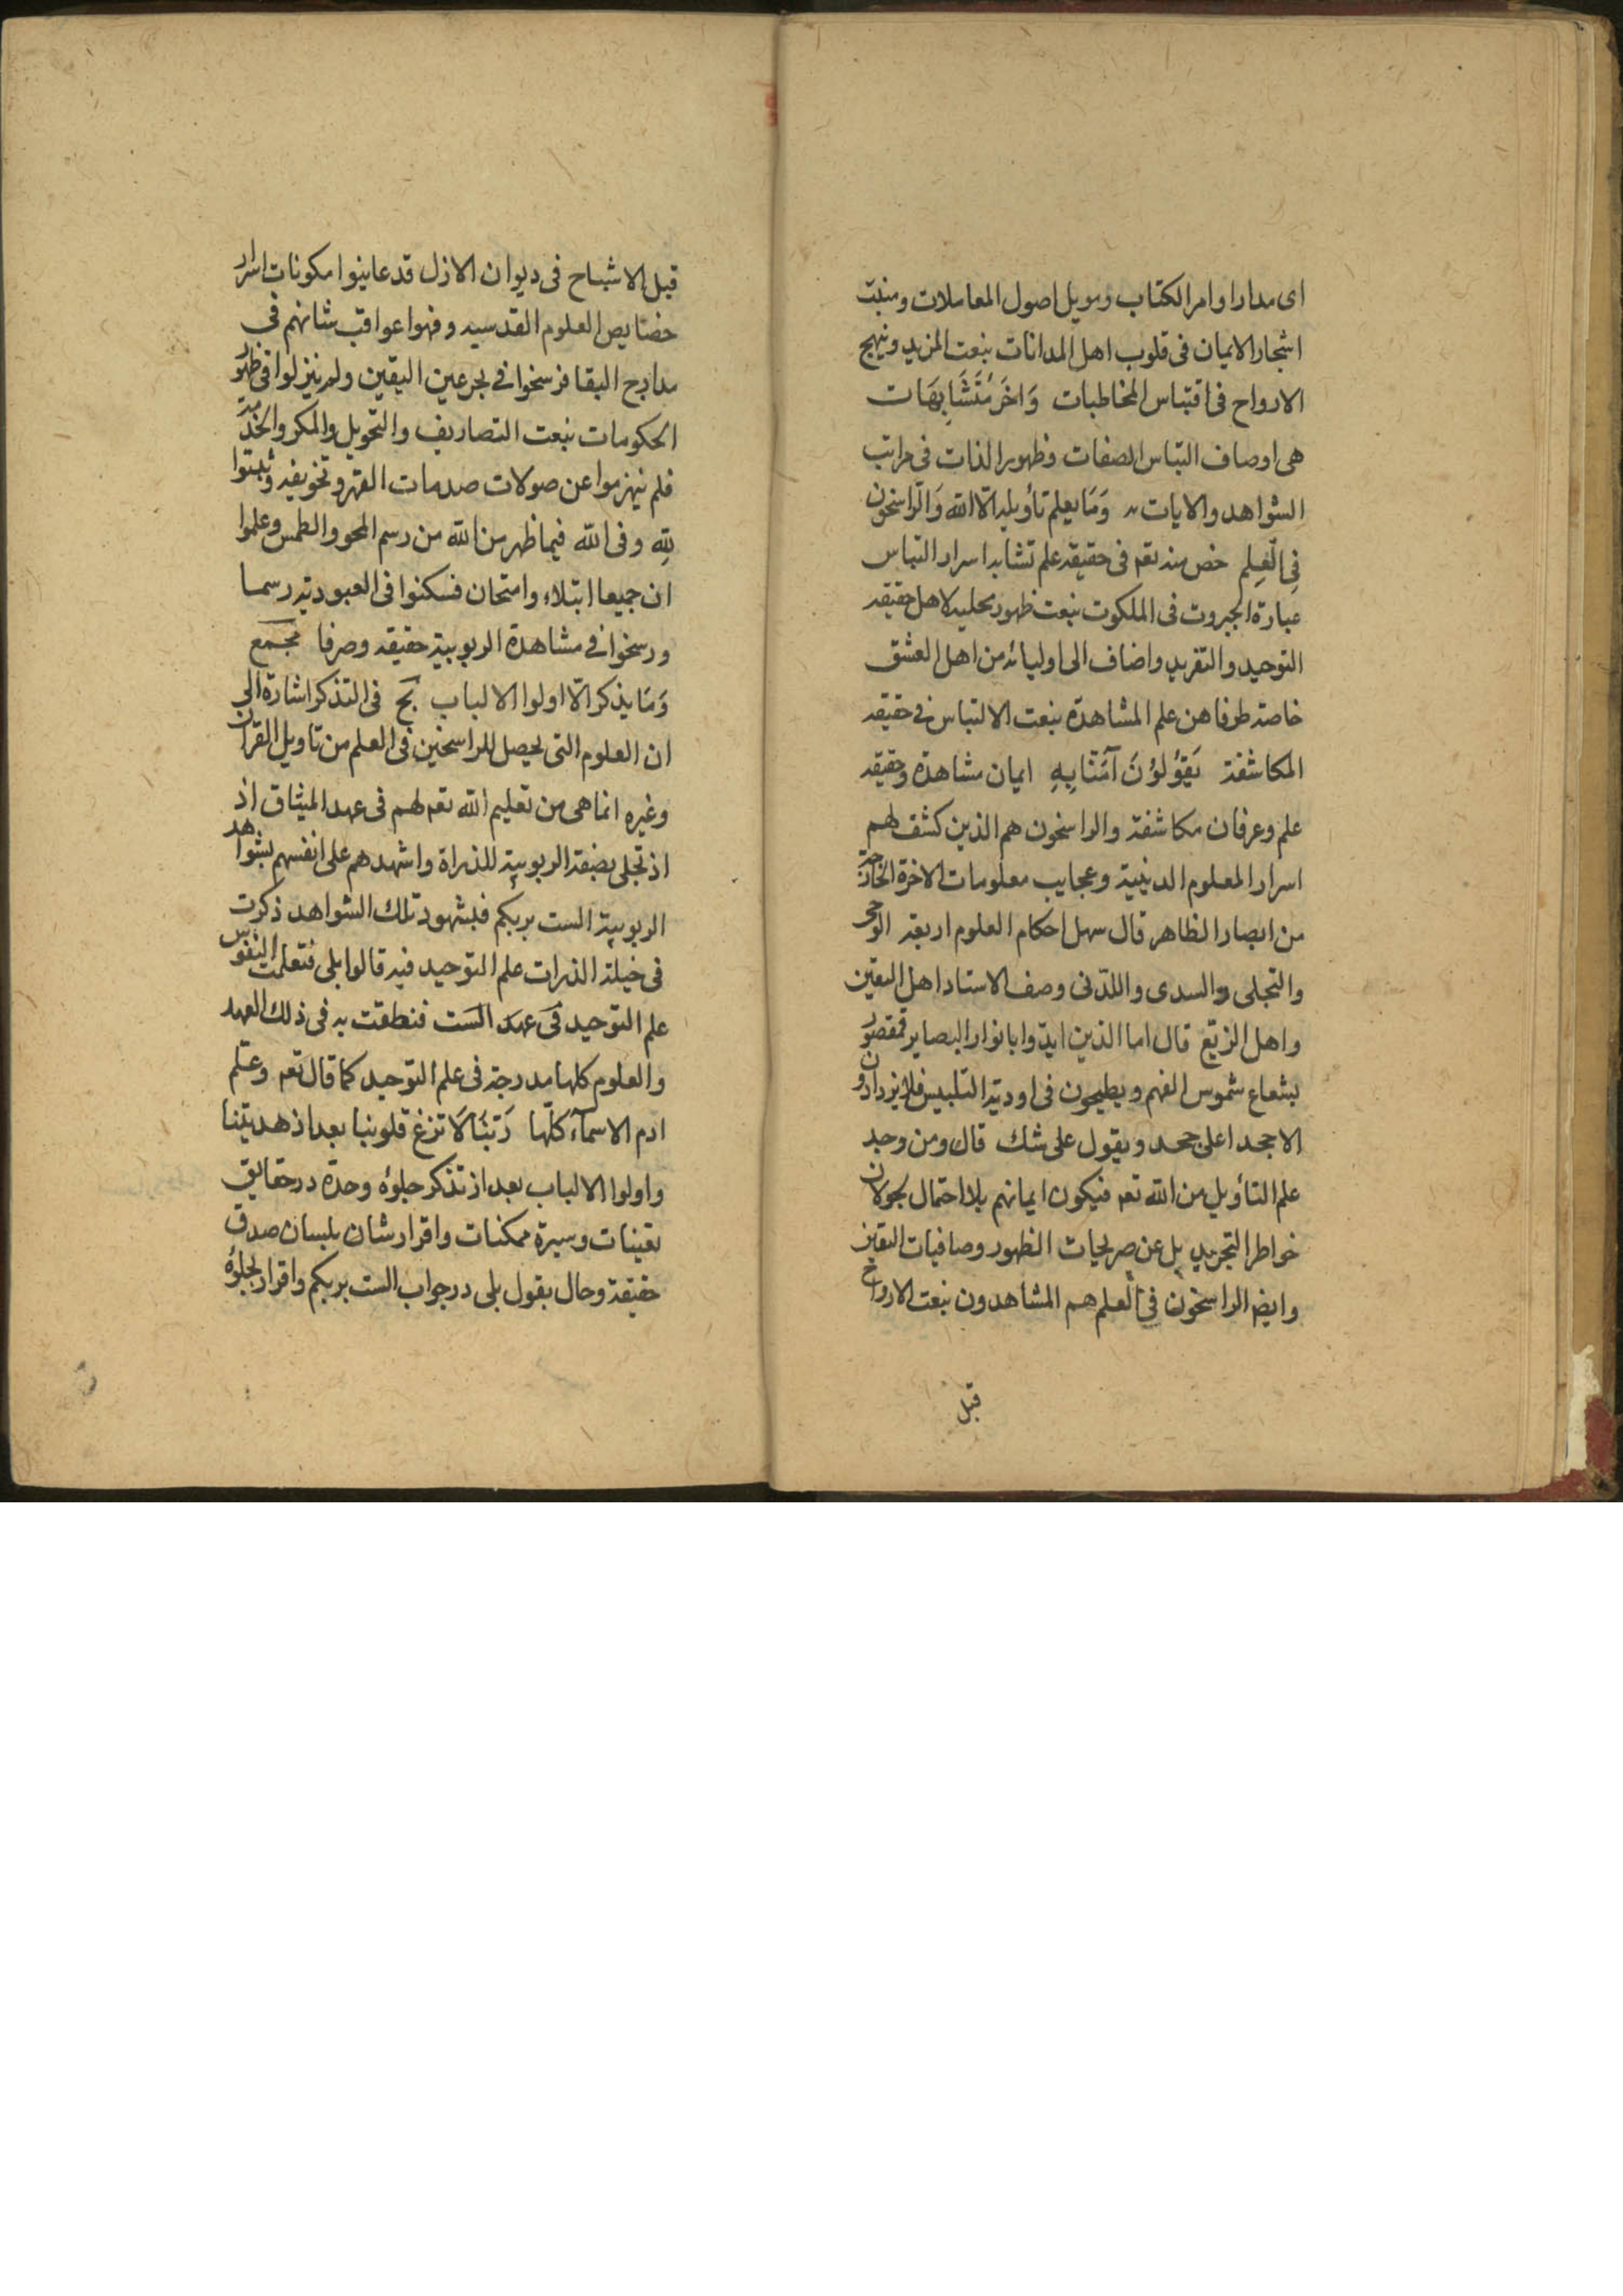 ای مدار اوامر الکتاب و مویل اصول المعاملات و منبت
اشجار الایمان فی قلوب اهل المدانات بنعت المزید و نهج
الارواح فی اقتباس المخاطبات وَاُخَرُ مُتَشَابِهَات
هی اوصاف التباس الصفات و ظهور الذات فی مراتب
الشواهد والایات وَمَا یعلم تأویله الّا الله وَالرّاسخون
فِی الْعِلمِ خص منه تعه فی حقیقه علم تشابه اسرار التباس
عبارة الجبروت فی الملکوت بنعت ظهور محلیه لاهل حقیقه
التوحید والتفرید واضاف الی اولیائه من اهل العشق
خاصة طرفا من علم المشاهدة بنعت الالتباس فی حقیقه
المکاشفة یَقُوْلُوْنَ آمَنَّا بِهِ ایمان مشاهدة و حقیقه
علم وعرفان مکاشفة والراسخون هم الذین کشف لهم
اسرار المعلوم الدینیة وعجایب معلومات الاخرة الخارجة
من ابصار الظاهر قال سهل احکام العلوم اربعة الوحی
والتجلی والسدی واللدّنی وصف الاستاد اهل الیقین
واهل الزیغ قال اما الذین ایدوا بانوار البصایر
بشعاع شموس الفهم و یطیحون فی اودیة التلبیس فلا یزدادون
الا جحدا علی جحد و یقول علی شک قال ومن وجد
علم التأویل من الله تعه فیکون ایمانهم بلا احتمال لجولان
خواطر التجرید بل عن صریحات الظهور وصافیات الیقین
وایضا الراسخون فی العلم هم المشاهدون بنعت الارواح
قبل
قبل الاشباح فی دیوان الازل قد عاینوا مکونات اسرار
خصایص العلوم القدسیه و فهموا عواقب شانهم فی
مدارج البقا فرسخوا فی بحر عین الیقین ولم ینزلوا فی ظهور
الحکومات بنعت التصاریف والتحویل والمکر والخدعة
فلم ینهزموا عن صولات صدمات القهر وتخویفه وثبتوا
لِلهِ وفی الله فیما ظهر من الله من رسم المحو والطمس وعلموا
ان جمیعا ابتلاء وامتحان فسکنوا فی العبودیة رسما
ورسخوا فی مشاهدة الربوبیة حقیقه وصرفا
وَمَا یذکر الّا اولوا الالباب فی التذکر اشارة الی
ان العلوم التی یحصل للراسخین فی العلم من تاویل القران
وغیره انما هی من تعلیم الله تعه لهم فی عهد المیثاق اذ
اذ تجلی بصفة الربوبیة للذراة واشهدهم علی انفسهم بشواهد
الربوبیة الست بربکم فبشهود تلک الشواهد ذکرت
فی جبلة الذرات علم التوحید فیه قالوا بلی فتعلمت النفوس
علم التوحید فی عهد الست فنطقت به فی ذلک العهد
والعلوم کلها مدرجة فی علم التوحید کما قال تعه وعلم
ادم الاسمآء کلّها رَبّنَا لَا تزغ قلوبنا بعد اذ هدیتنا
واولوا الالباب بعد از تذکر جلوه وحدة در حقایق
تعینات و سیرة ممکنات واقرار شان بلسان صدق
حقیقة و حال بقول بلی در جواب الست بربکم واقرار بجلوهٔ